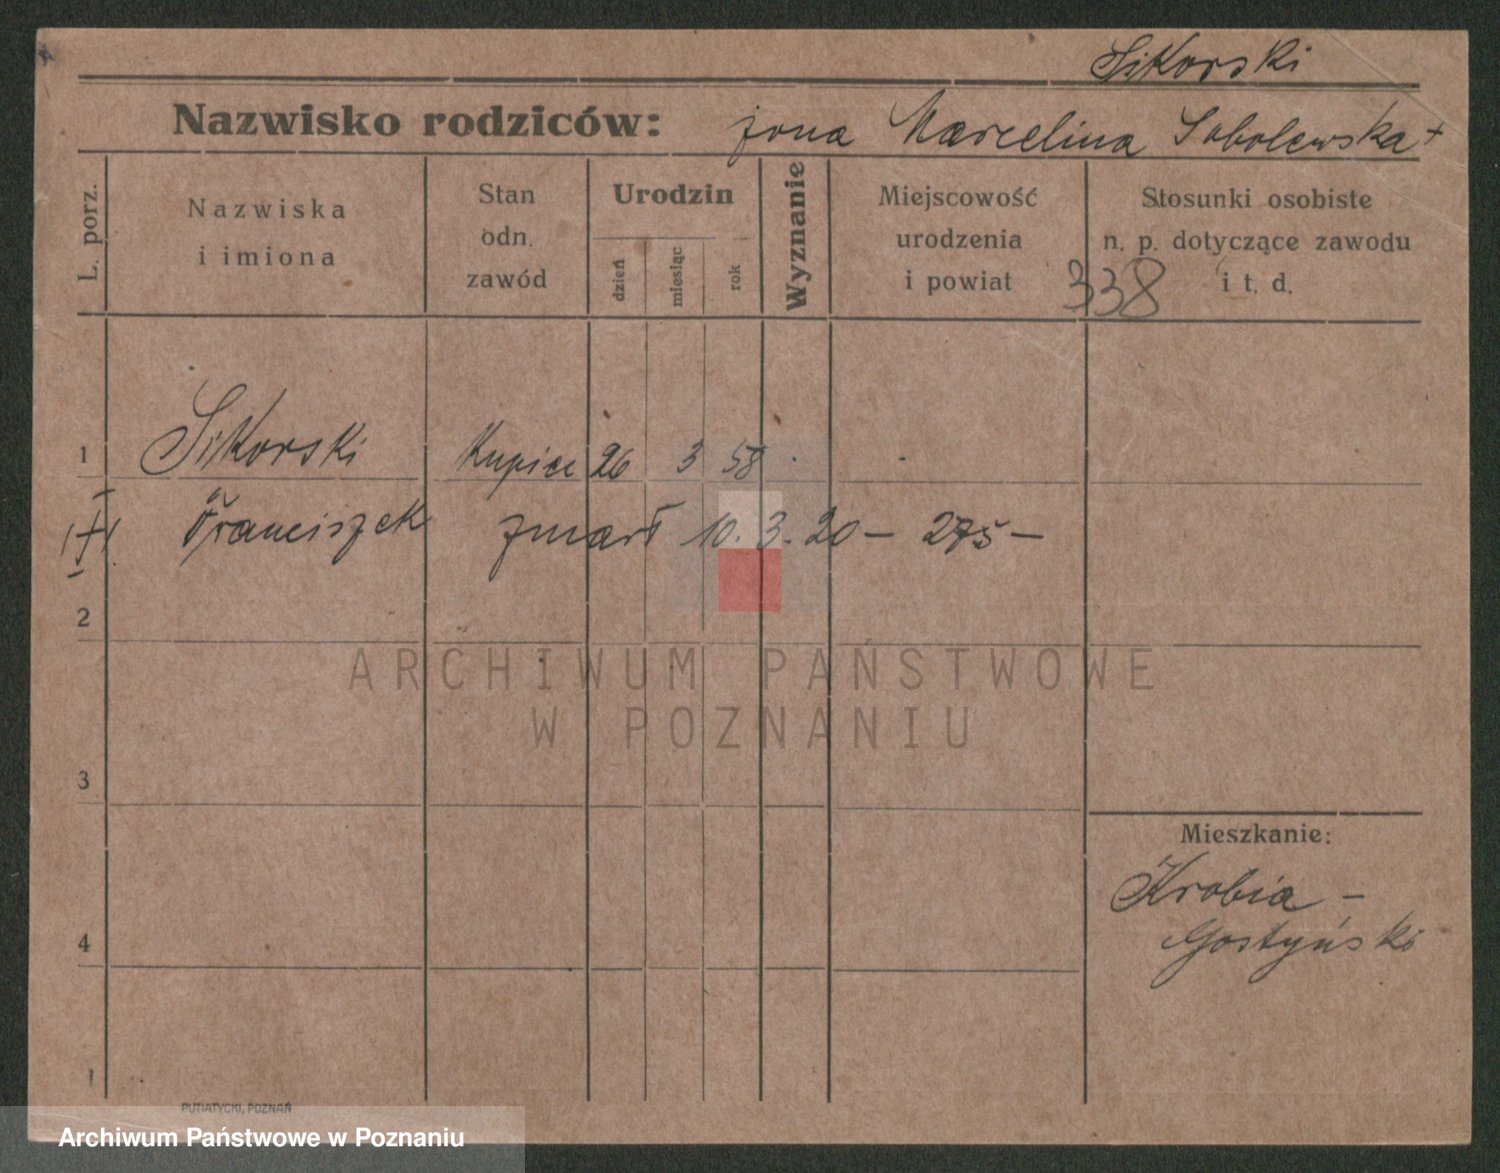 Sikorski
Nazwisko rodziców: żona Marcelina Sobolewska +
L. porz.
Nazwiska
i imiona
Stan
odn.
zawód
Urodzin
dzień
miesiąc
rok
Wyznanie
Miejscowość
urodzenia
i powiat
Stosunki osobiste
n. p. dotyczące zawodu
i t. d.
338
1 Sikorski Kupiec 26 3 58
Franciszek zmarł 10. 3. 20 — 275 —
2
ARCHIWUM PAŃSTWOWE
W POZNANIU
3
Mieszkanie:
Krobia -
Gostyński
4
PUTIATYCKI, POZNAŃ
Archiwum Państwowe w Poznaniu